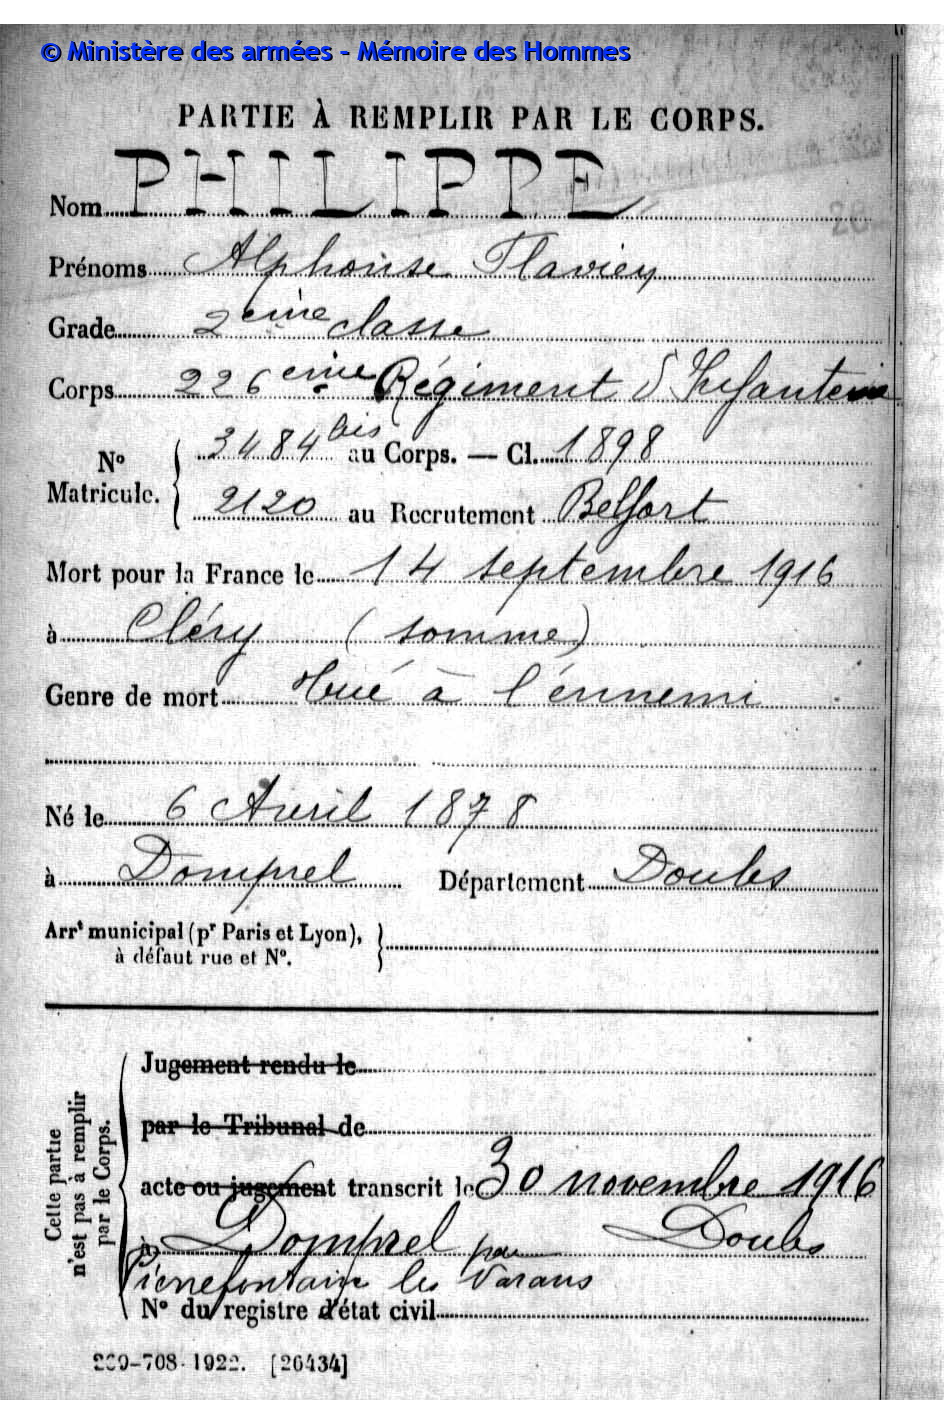 © Ministère des armées - Mémoire des Hommes
PARTIE À REMPLIR PAR LE CORPS.
Nom PHILIPPE
20
Prénoms Alphonse Flavien
Grade 2ème classe
Corps 226ème Régiment d'Infanterie
N° Matricule. { 3484 bis au Corps. — Cl. 1898
2120 au Recrutement Belfort
Mort pour la France le 14 septembre 1916
à Cléry (somme)
Genre de mort Tué à l'énnemi
Né le 6 Avril 1878
à Domprel Département Doubs
Arrt municipal (pr Paris et Lyon), }
à défaut rue et N°.
Cette partie
n'est pas à remplir
par le Corps.
Jugement rendu le
par le Tribunal de
acte ou jugement transcrit le 30 novembre 1916
à Domprel par Doubs
Pierrefontain les Varans
N° du registre d'état civil
269-708-1922. [26434]